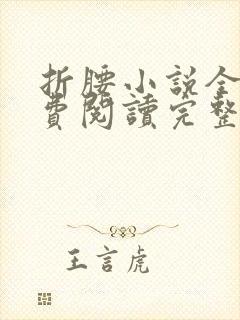 折腰小说全
費閱讀完整
王言虎